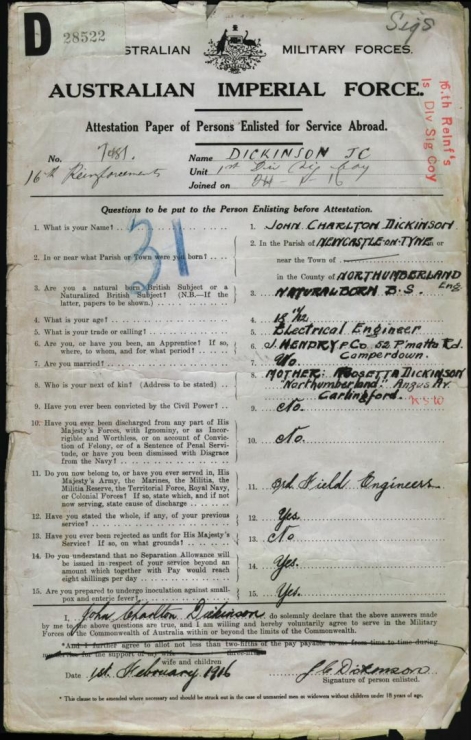 D 28522
Sigs
AUSTRALIAN MILITARY FORCES.
AUSTRALIAN IMPERIAL FORCE.
16.th Reinf's
1s Div Sig Coy
Attestation Paper of Persons Enlisted for Service Abroad.
No. Name DICKINSON JC
16th Reinforcements Unit 1st Div Sig Coy
Joined on
Questions to be put to the Person Enlisting before Attestation.
31
1. What is your Name? 1. JOHN CHARLTON DICKINSON
2. In or near what Parish or Town were you born? 2. In the Parish of NEWCASTLE-ON-TYNE or
near the Town of
in the County of NORTHUMBERLAND
Eng
3. Are you a natural born British Subject or a
Naturalized British Subject? (N.B.—If the
latter, papers to be shown.) 3. NATURAL BORN B.S.
4. What is your age? 4.
5. What is your trade or calling? 5. Electrical Engineer
6. Are you, or have you been, an Apprentice? If so,
where, to whom, and for what period? 6. J. HENDRY & Co. 52 P'matta Rd.
Camperdown.
7. Are you married? 7. No.
8. Who is your next of kin? (Address to be stated) 8. MOTHER: ROSETTA DICKINSON
"Northumberland" Angus Av.
Carlingford. N.S.W
9. Have you ever been convicted by the Civil Power? 9. No.
10. Have you ever been discharged from any part of His
Majesty's Forces, with Ignominy, or as Incor-
rigible and Worthless, or on account of Convic-
tion of Felony, or of a Sentence of Penal Servi-
tude, or have you been dismissed with Disgrace
from the Navy? 10. No.
11. Do you now belong to, or have you ever served in, His
Majesty's Army, the Marines, the Militia, the
Militia Reserve, the Territorial Force, Royal Navy,
or Colonial Forces? If so, state which, and if not
now serving, state cause of discharge 11. 3rd. Field Engineers
12. Have you stated the whole, if any, of your previous
service? 12. Yes.
13. Have you ever been rejected as unfit for His Majesty's
Service? If so, on what grounds? 13. No.
14. Do you understand that no Separation Allowance will
be issued in respect of your service beyond an
amount which together with Pay would reach
eight shillings per day 14. Yes.
15. Are you prepared to undergo inoculation against small-
pox and enteric fever? 15. Yes.
I, John Charlton Dickinson do solemnly declare that the above answers made
by me to the above questions are true, and I am willing and hereby voluntarily agree to serve in the Military
Forces of the Commonwealth of Australia within or beyond the limits of the Commonwealth.
*And I further agree to allot not less than two-fifths of the pay payable to me from time to time during
my service for the support of my wife
wife and children
Date 1st. February 1916 J. C. Dickinson
Signature of person enlisted.
* This clause to be amended where necessary and should be struck out in the case of unmarried men or widowers without children under 18 years of age.